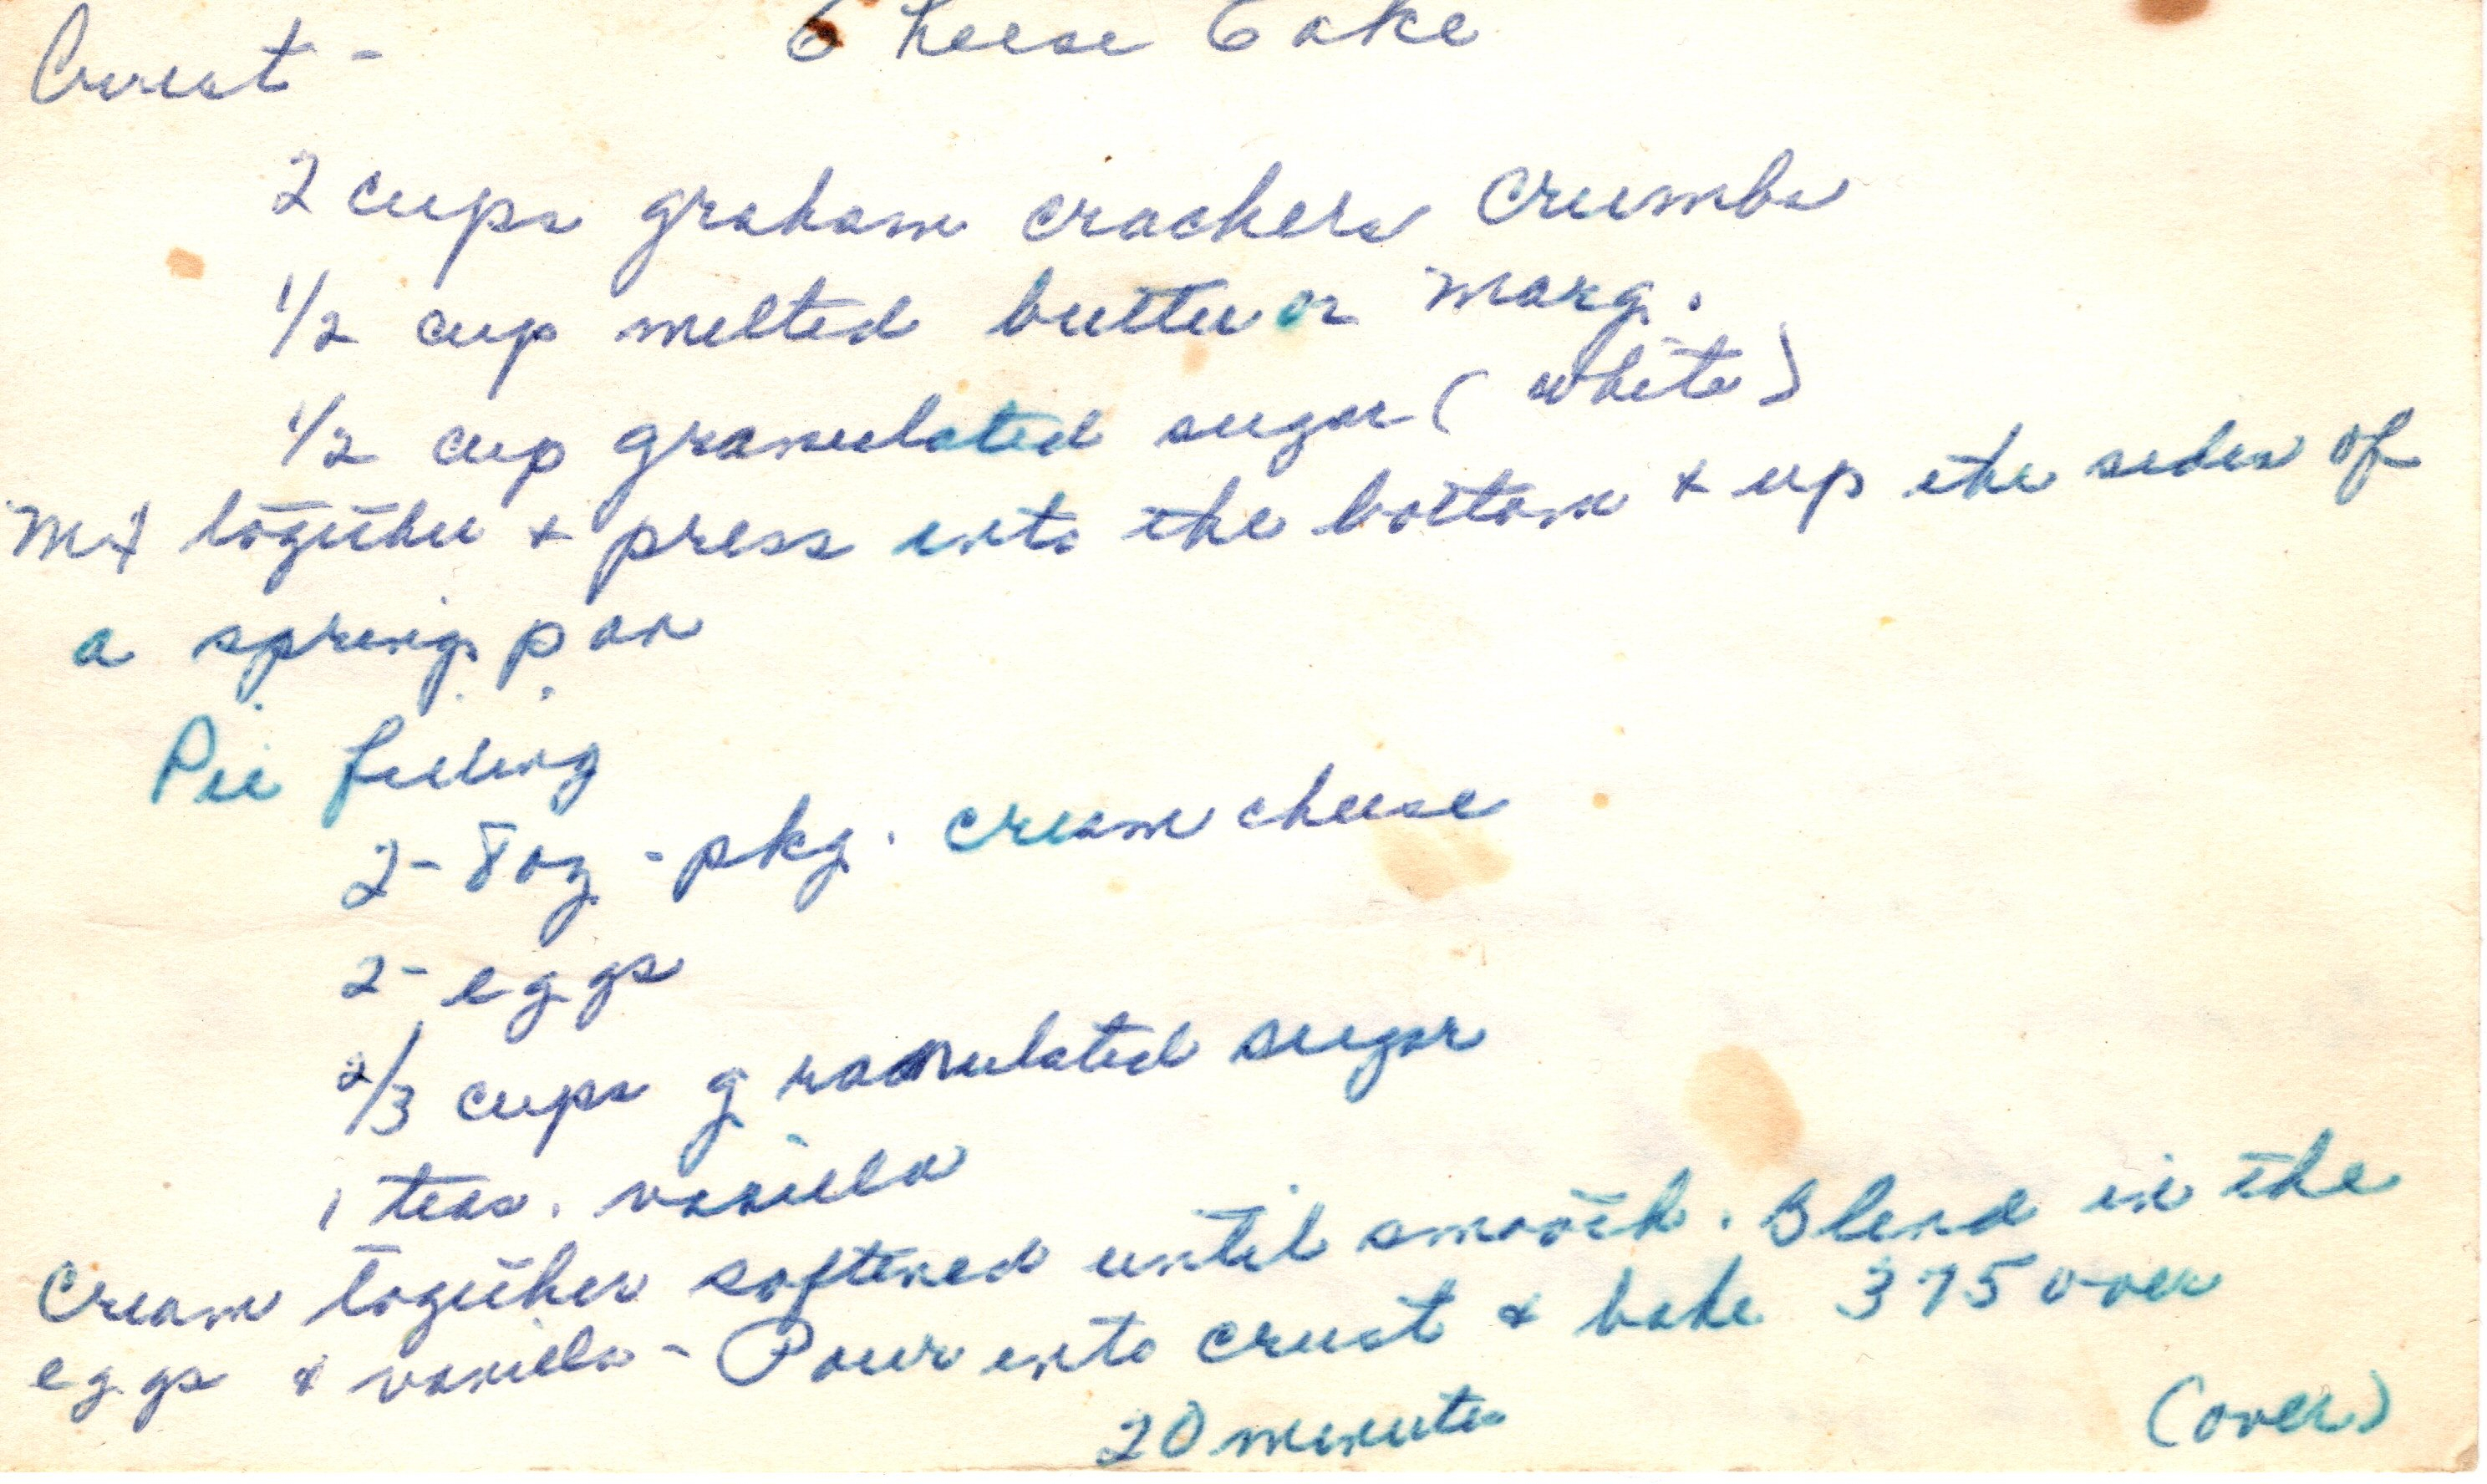 Cheese Cake
Crust -
2 cups graham crackers crumbs
1/2 cup melted butter or marg.
1/2 cup granulated sugar (white)
Mix together & press into the bottom & up the sides of
a spring pan
Pie filling
2 - 8 oz - pkg. cream cheese
2 - eggs
2/3 cups granulated sugar
1 teas. vanilla
Cream together softened until smooth. Blend in the
eggs & vanilla - Pour into crust & bake 375 oven
20 minutes
(over)